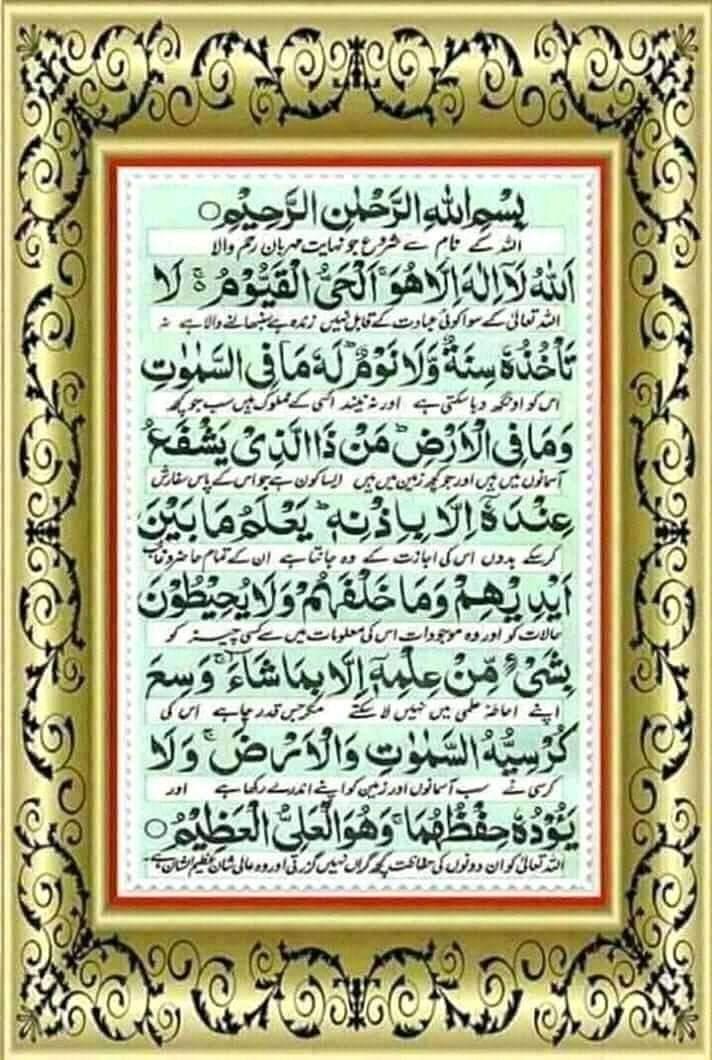 بِسْمِ اللهِ الرَّحْمٰنِ الرَّحِيْمِ ○
اللہ کے نام سے شروع جو نہایت مہربان رحم والا
اَللهُ لَآ اِلٰهَ اِلَّا هُوَ ۚ اَلْحَىُّ الْقَيُّوْمُ ۚ لَا
اللہ تعالیٰ کے سوا کوئی عبادت کے قابل نہیں زندہ ہے سنبھالنے والا ہے نہ
تَاْخُذُهٗ سِنَةٌ وَّلَا نَوْمٌ ؕ لَهٗ مَا فِى السَّمٰوٰتِ
اس کو اونگھ دبا سکتی ہے اور نہ نیند اسی کے مملوک ہیں سب جو کچھ
وَمَا فِى الْاَرْضِ ؕ مَنْ ذَا الَّذِىْ يَشْفَعُ
آسمانوں میں ہیں اور جو کچھ زمین میں ہیں ایسا کون ہے جو اس کے پاس سفارش
عِنْدَهٗٓ اِلَّا بِاِذْنِهٖ ؕ يَعْلَمُ مَا بَيْنَ
کر سکے بدوں اس کی اجازت کے وہ جانتا ہے ان کے تمام حاضر و غائب
اَيْدِيْهِمْ وَمَا خَلْفَهُمْ وَلَا يُحِيْطُوْنَ
حالات کو اور وہ موجودات اس کی معلومات میں سے کسی چیز کو
بِشَىْءٍ مِّنْ عِلْمِهٖٓ اِلَّا بِمَا شَآءَ ۚ وَسِعَ
اپنے احاطۂ علمی میں نہیں لا سکتے مگر جس قدر چاہے اس کی
كُرْسِيُّهُ السَّمٰوٰتِ وَالْاَرْضَ ۚ وَلَا
کرسی نے سب آسمانوں اور زمین کو اپنے اندر لے رکھا ہے اور
يَـُٔوْدُهٗ حِفْظُهُمَا ۚ وَهُوَ الْعَلِىُّ الْعَظِيْمُ ○
اللہ تعالیٰ کو ان دونوں کی حفاظت کچھ گراں نہیں گزرتی اور وہ عالی شان عظیم الشان ہے